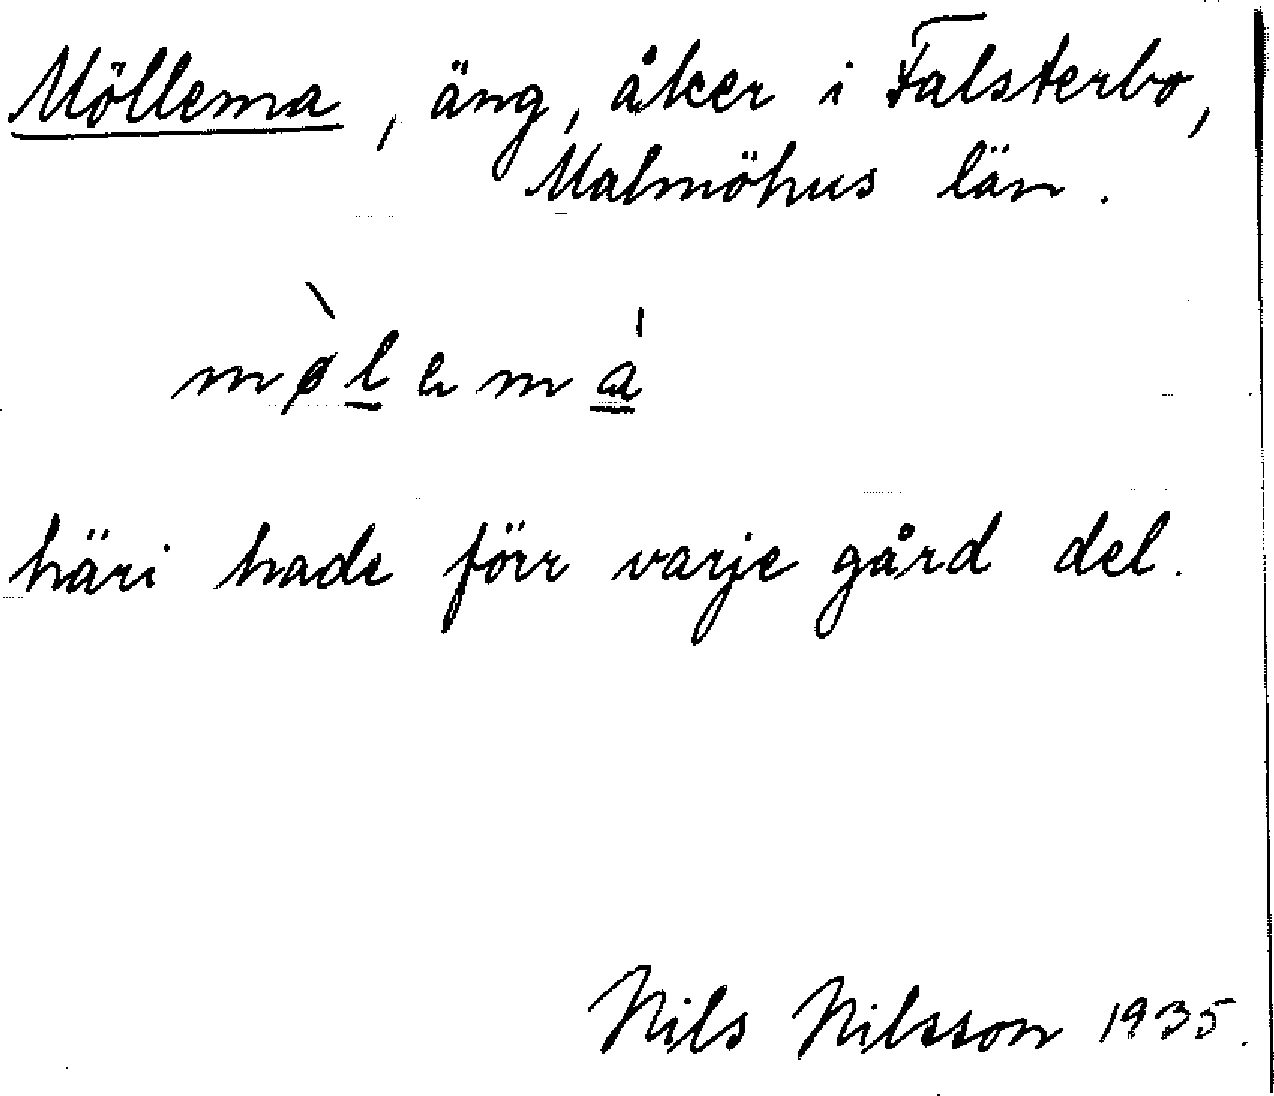 Möllema, äng, åker i Falsterbo,
Malmöhus län.
mø̀l̲ema̳̍
häri hade förr varje gård del.
Nils Nilsson 1935.